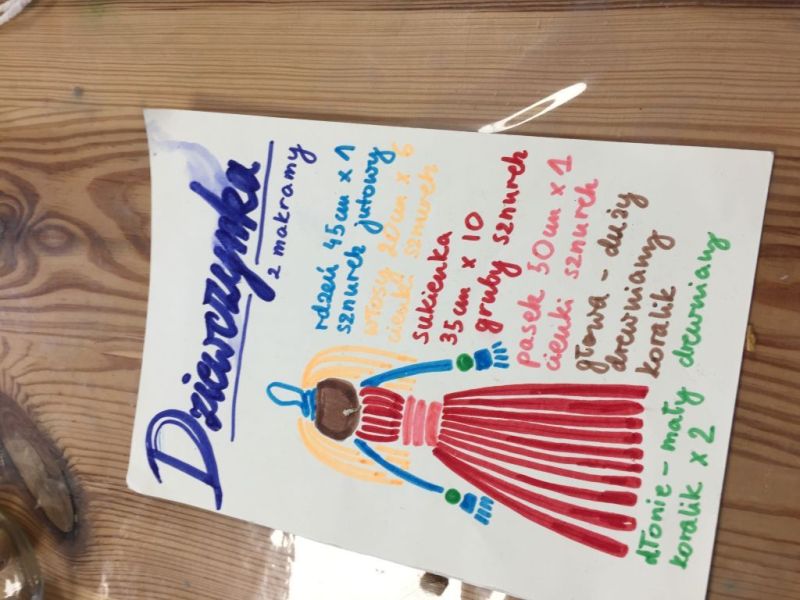 Dziewczynka
z makramy
rdzeń 45cm x 1
sznurek jutowy
włosy 20cm x 6
cienki sznurek
sukienka
35cm x 10
gruby sznurek
pasek 50cm x 1
cienki sznurek
głowa - duży
drewniany
koralik
dłonie - mały drewniany
koralik x 2